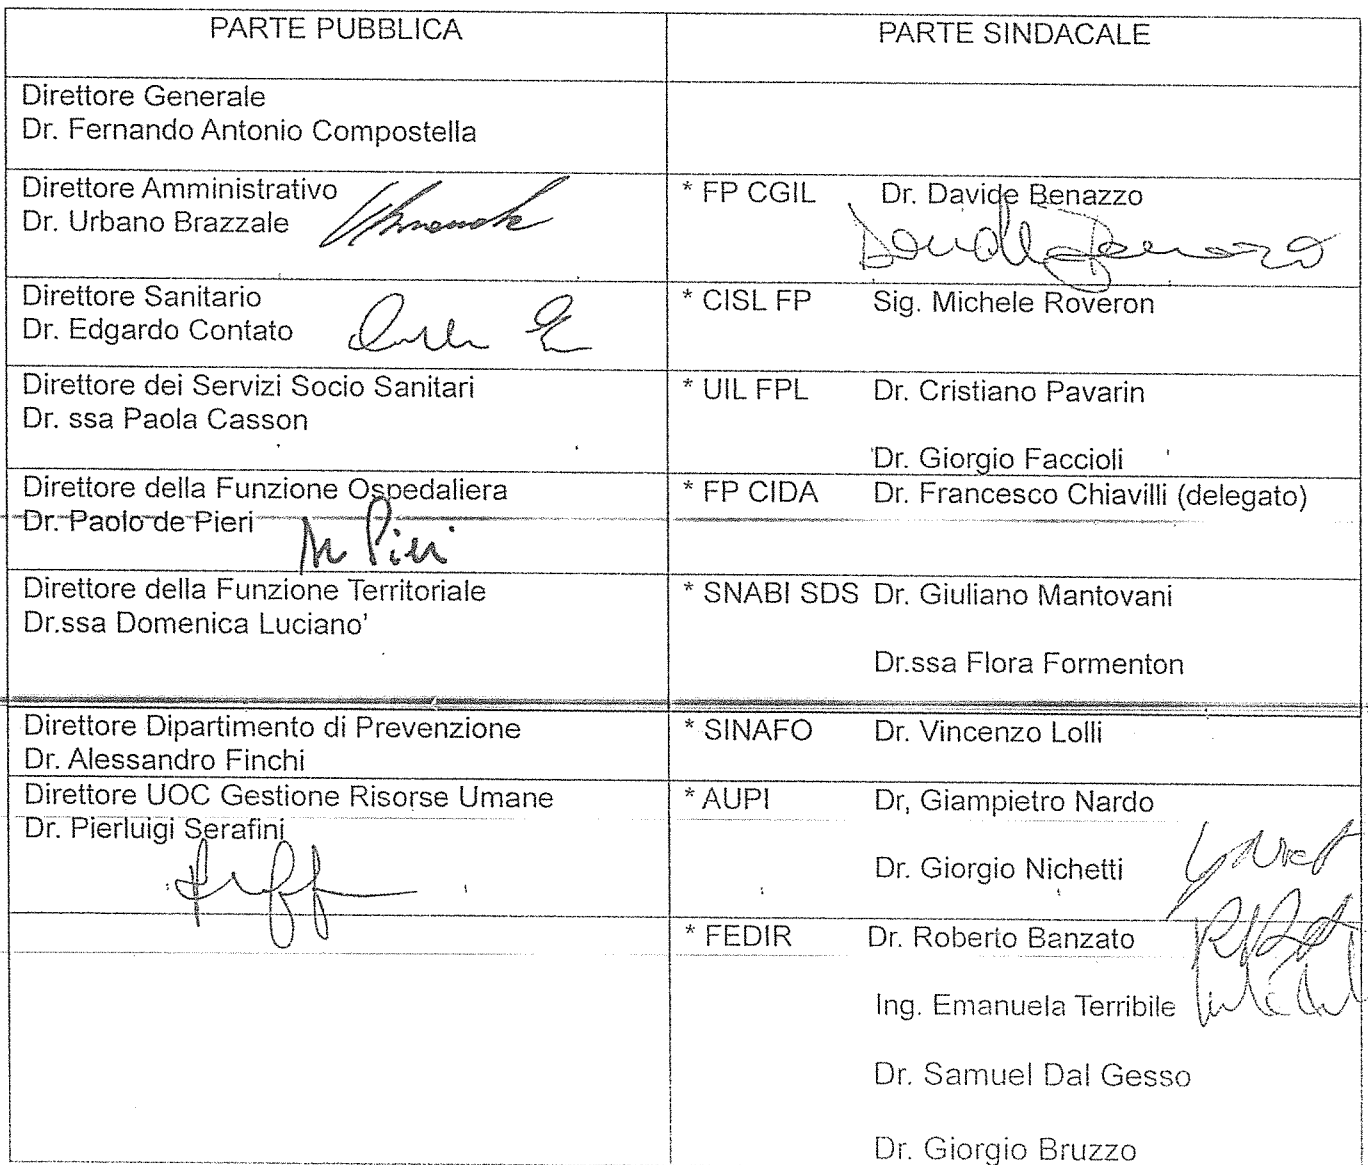 PARTE PUBBLICA
PARTE SINDACALE
Direttore Generale
Dr. Fernando Antonio Compostella
Direttore Amministrativo
Dr. Urbano Brazzale
* FP CGIL Dr. Davide Benazzo
Davide Benazzo
Direttore Sanitario
Dr. Edgardo Contato
* CISL FP Sig. Michele Roveron
Direttore dei Servizi Socio Sanitari
Dr. ssa Paola Casson
* UIL FPL Dr. Cristiano Pavarin
Dr. Giorgio Faccioli
Direttore della Funzione Ospedaliera
Dr. Paolo de Pieri
Pieri
* FP CIDA Dr. Francesco Chiavilli (delegato)
Direttore della Funzione Territoriale
Dr.ssa Domenica Luciano'
* SNABI SDS Dr. Giuliano Mantovani
Dr.ssa Flora Formenton
Direttore Dipartimento di Prevenzione
Dr. Alessandro Finchi
* SINAFO Dr. Vincenzo Lolli
Direttore UOC Gestione Risorse Umane
Dr. Pierluigi Serafini
* AUPI Dr, Giampietro Nardo
Dr. Giorgio Nichetti
* FEDIR Dr. Roberto Banzato
Ing. Emanuela Terribile
Dr. Samuel Dal Gesso
Dr. Giorgio Bruzzo